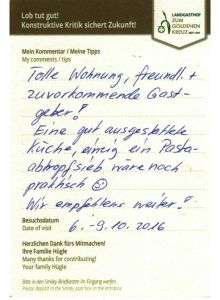 Lob tut gut!
Konstruktive Kritik sichert Zukunft!
LANDGASTHOF
ZUM
GOLDENEN
KREUZ
Mein Kommentar / Meine Tipps
My comments / tips
Tolle Wohnung, freundl. +
zuvorkommende Gast-
geber!
Eine gut ausgestattete
Küche, einzig ein Pasta-
abtropfsieb wäre noch
praktisch ☺
Wir empfehlens weiter!
Besuchsdatum
Date of visit
6.-9.10.2016
Herzlichen Dank fürs Mitmachen!
Ihre Familie Hügle
Many thanks for contributing!
Your family Hügle
Bitte in den Smiley-Briefkasten im Eingang werfen.
Please deposit in the Smiley post box in the entrance.